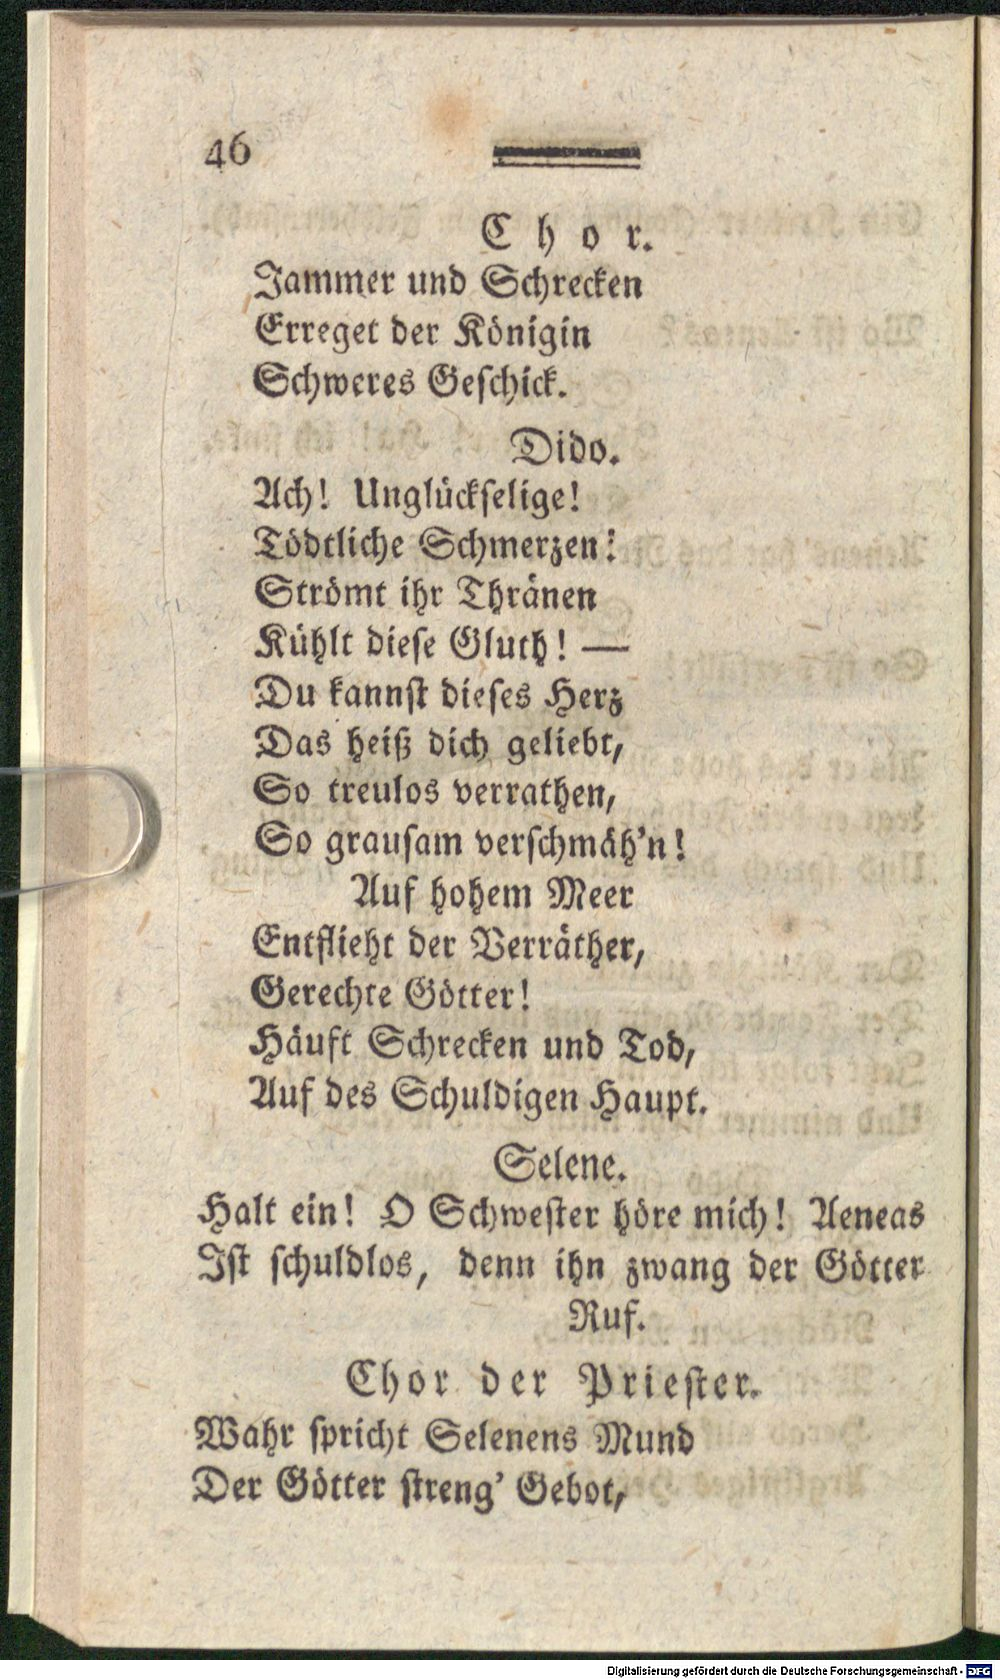 46
Chor.
Jammer und Schrecken
Erreget der Königin
Schweres Geschick.
Dido.
Ach! Unglückselige!
Tödtliche Schmerzen!
Strömt ihr Thränen
Kühlt diese Gluth! —
Du kannst dieses Herz
Das heiß dich geliebt,
So treulos verrathen,
So grausam verschmäh'n!
Auf hohem Meer
Entflieht der Verräther,
Gerechte Götter!
Häuft Schrecken und Tod,
Auf des Schuldigen Haupt.
Selene.
Halt ein! O Schwester höre mich! Aeneas
Ist schuldlos, denn ihn zwang der Götter
Ruf.
Chor der Priester.
Wahr spricht Selenens Mund
Der Götter streng' Gebot,
Digitalisierung gefördert durch die Deutsche Forschungsgemeinschaft - DFG